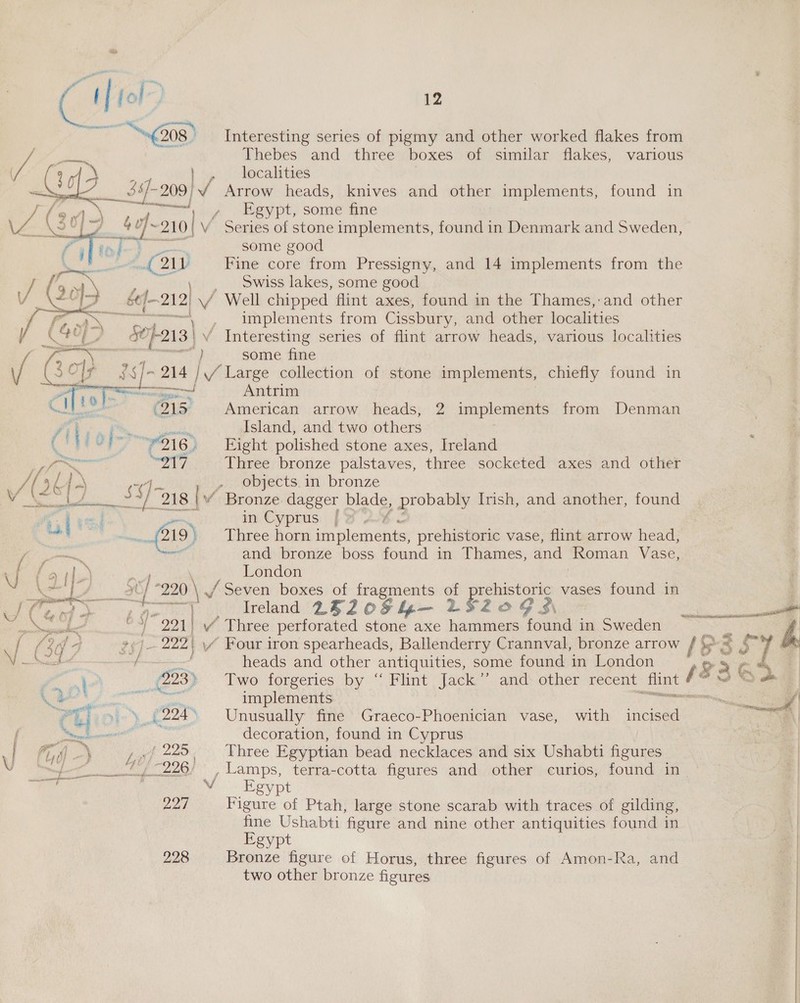 12
208 Interesting series of pigmy and other worked flakes from
Thebes and three boxes of similar flakes, various
localities
209 Arrow heads, knives and other implements, found in
Egypt, some fine
210 Series of stone implements, found in Denmark and Sweden,
some good
211 Fine core from Pressigny, and 14 implements from the
Swiss lakes, some good
212 Well chipped flint axes, found in the Thames, and other
implements from Cissbury, and other localities
213 Interesting series of flint arrow heads, various localities
some fine
214 Large collection of stone implements, chiefly found in
Antrim
215 American arrow heads, 2 implements from Denman
Island, and two others
216 Eight polished stone axes, Ireland
217 Three bronze palstaves, three socketed axes and other
objects in bronze
218 Bronze dagger blade, probably Irish, and another, found
in Cyprus
219 Three horn implements, prehistoric vase, flint arrow head,
and bronze boss found in Thames, and Roman Vase,
London
220 Seven boxes of fragments of prehistoric vases found in
Ireland
221 Three perforated stone axe hammers found in Sweden
222 Four iron spearheads, Ballenderry Crannval, bronze arrow
heads and other antiquities, some found in London
223 Two forgeries by “Flint Jack” and other recent flint
implements
224 Unusually fine Graeco-Phoenician vase, with incised
decoration, found in Cyprus
225 Three Egyptian bead necklaces and six Ushabti figures
226 Lamps, terra-cotta figures and other curios, found in
Egypt
227 Figure of Ptah, large stone scarab with traces of gilding,
fine Ushabti figure and nine other antiquities found in
Egypt
228 Bronze figure of Horus, three figures of Amon-Ra, and
two other bronze figures